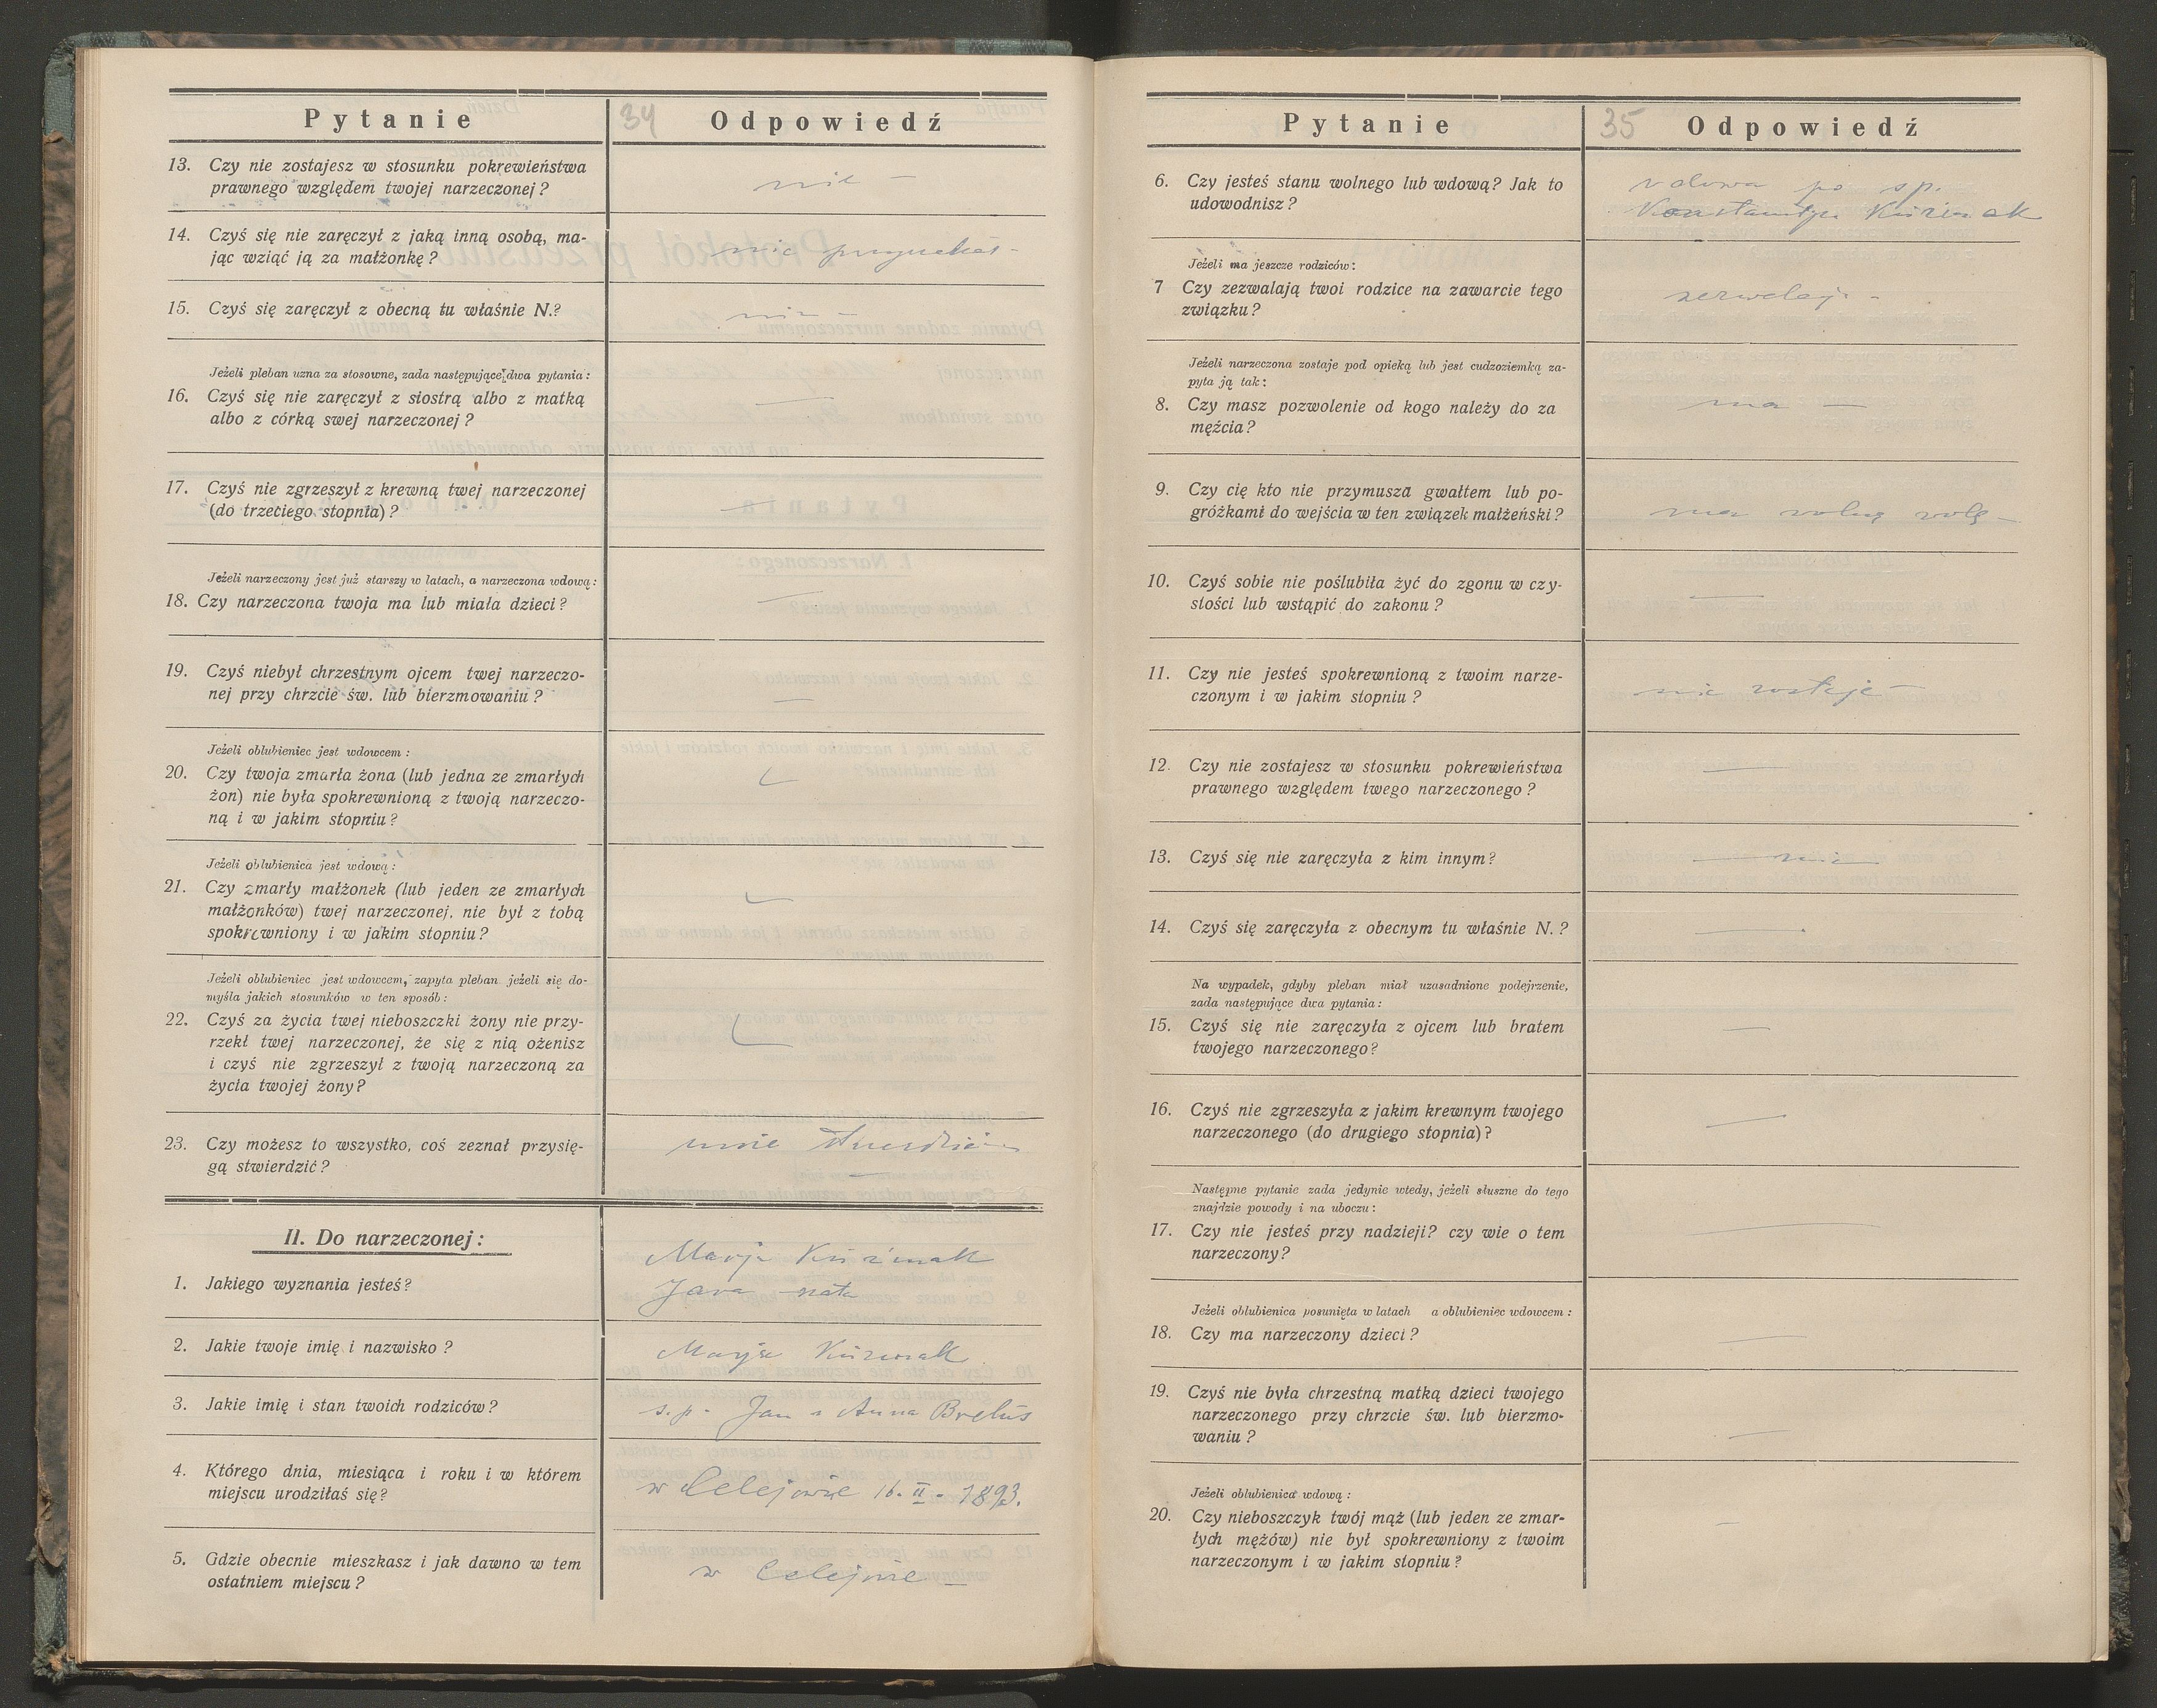 Pytanie
34
Odpowiedź
13. Czy nie zostajesz w stosunku pokrewieństwa
prawnego względem twojej narzeczonej?
nie —
14. Czyś się nie zaręczył z jaką inną osobą, ma-
jąc wziąć ją za małżonkę?
nie
15. Czyś się zaręczył z obecną tu właśnie N.?
nie —
Jeżeli pleban uzna za stosowne, zada następujące dwa pytania:
16. Czyś się nie zaręczył z siostrą albo z matką
albo z córką swej narzeczonej?
—
17. Czyś nie zgrzeszył z krewną twej narzeczonej
(do trzeciego stopnia)?
—
Jeżeli narzeczony jest już starszy w latach, a narzeczona wdową:
18. Czy narzeczona twoja ma lub miała dzieci?
—
19. Czyś niebył chrzestnym ojcem twej narzeczo-
nej przy chrzcie św. lub bierzmowaniu?
—
Jeżeli oblubieniec jest wdowcem:
20. Czy twoja zmarła żona (lub jedna ze zmarłych
żon) nie była spokrewnioną z twoją narzeczo-
ną i w jakim stopniu?
Jeżeli oblubienica jest wdową:
21. Czy zmarły małżonek (lub jeden ze zmarłych
małżonków) twej narzeczonej, nie był z tobą
spokrewniony i w jakim stopniu?
Jeżeli oblubieniec jest wdowcem, zapyta pleban jeżeli się do-
myśla jakich stosunków w ten sposób:
22. Czyś za życia twej nieboszczki żony nie przy-
rzekł twej narzeczonej, że się z nią ożenisz
i czyś nie zgrzeszył z twoją narzeczoną za
życia twojej żony?
23. Czy możesz to wszystko, coś zeznał przysię-
gą stwierdzić?
II. Do narzeczonej:
Marja Kuźniak
1. Jakiego wyznania jesteś?
2. Jakie twoje imię i nazwisko?
Marja Kuźniak
3. Jakie imię i stan twoich rodziców?
s.p. Jan i Anna Breluś
4. Którego dnia, miesiąca i roku i w którem
miejscu urodziłaś się?
w Celejowie 16. II. 1893.
5. Gdzie obecnie mieszkasz i jak dawno w tem
ostatniem miejscu?
w Celejowie —
Pytanie
35
Odpowiedź
6. Czy jesteś stanu wolnego lub wdową? Jak to
udowodnisz?
wdowa po sp.
Konstantym Kuźniak
Jeżeli ma jeszcze rodziców:
7 Czy zezwalają twoi rodzice na zawarcie tego
związku?
zezwalają —
Jeżeli narzeczona zostaje pod opieką lub jest cudzoziemką za-
pyta ją tak:
8. Czy masz pozwolenie od kogo należy do za
mężcia?
ma —
9. Czy cię kto nie przymusza gwałtem lub po-
gróżkami do wejścia w ten związek małżeński?
ma wolną wolę —
10. Czyś sobie nie poślubiła żyć do zgonu w czy-
stości lub wstąpić do zakonu?
—
11. Czy nie jesteś spokrewnioną z twoim narze-
czonym i w jakim stopniu?
nie zostaje —
12. Czy nie zostajesz w stosunku pokrewieństwa
prawnego względem twego narzeczonego?
—
13. Czyś się nie zaręczyła z kim innym?
— nie —
14. Czyś się zaręczyła z obecnym tu właśnie N.?
—
Na wypadek, gdyby pleban miał uzasadnione podejrzenie,
zada następujące dwa pytania:
15. Czyś się nie zaręczyła z ojcem lub bratem
twojego narzeczonego?
—
16. Czyś nie zgrzeszyła z jakim krewnym twojego
narzeczonego (do drugiego stopnia)?
—
Następne pytanie zada jedynie wtedy, jeżeli słuszne do tego
znajdzie powody i na uboczu:
17. Czy nie jesteś przy nadzieji? czy wie o tem
narzeczony?
—
Jeżeli oblubienica posunięta w latach a oblubieniec wdowcem:
18. Czy ma narzeczony dzieci?
—
19. Czyś nie była chrzestną matką dzieci twojego
narzeczonego przy chrzcie św. lub bierzmo-
waniu?
—
Jeżeli oblubienica wdową:
20. Czy nieboszczyk twój mąż (lub jeden ze zmar-
łych mężów) nie był spokrewniony z twoim
narzeczonym i w jakim stopniu?
—